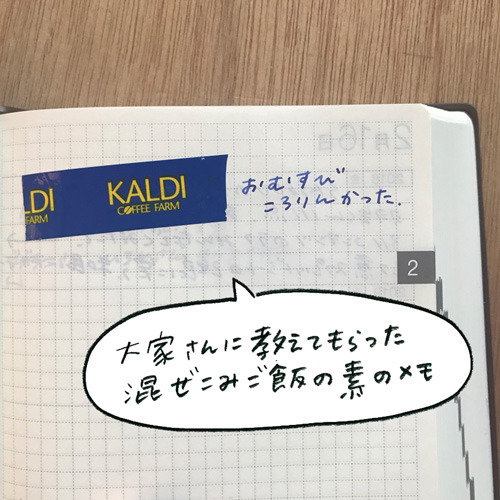 2月16日
LDI
EE FARM
KALDI
COFFEE FARM
おむすび
ころりんかった.
2
大家さんに教えてもらった
混ぜこみご飯の素のメモ